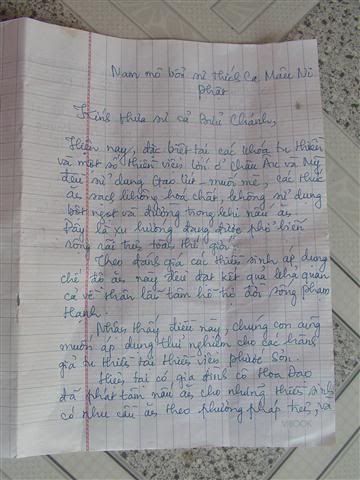 Nam mô bổn sư thích Ca Mâu Ni
phật
Kính thưa sư cả Bửu Chánh,
Hiện nay, đặc biệt tại các khóa tu thiền
và một số thiền viện lớn ở Châu Âu và Mỹ
đều sử dụng Gạo lứt - muối mè, các thức
ăn sạch không hoá chất, không sử dụng
bột ngọt và đường trong khi nấu ăn.
Đây là xu hướng đang được phổ biến
rộng rãi trên toàn thế giới.
Theo đánh giá các thiền sinh áp dụng
chế độ ăn này đều đạt kết quả khả quan
cả về thân lẫn tâm hỗ trợ đời sống phạm
Hạnh.
Nhận thấy điều này, chúng con cũng
muốn áp dụng thử nghiệm cho các hành
giả tu thiền tại thiền viện phước Sơn.
Hiện tại có gia đình cô Hoa Đạo
đã phát tâm nấu ăn cho những thiền sinh
có nhu cầu ăn theo phương pháp trên, và
VIBOOK